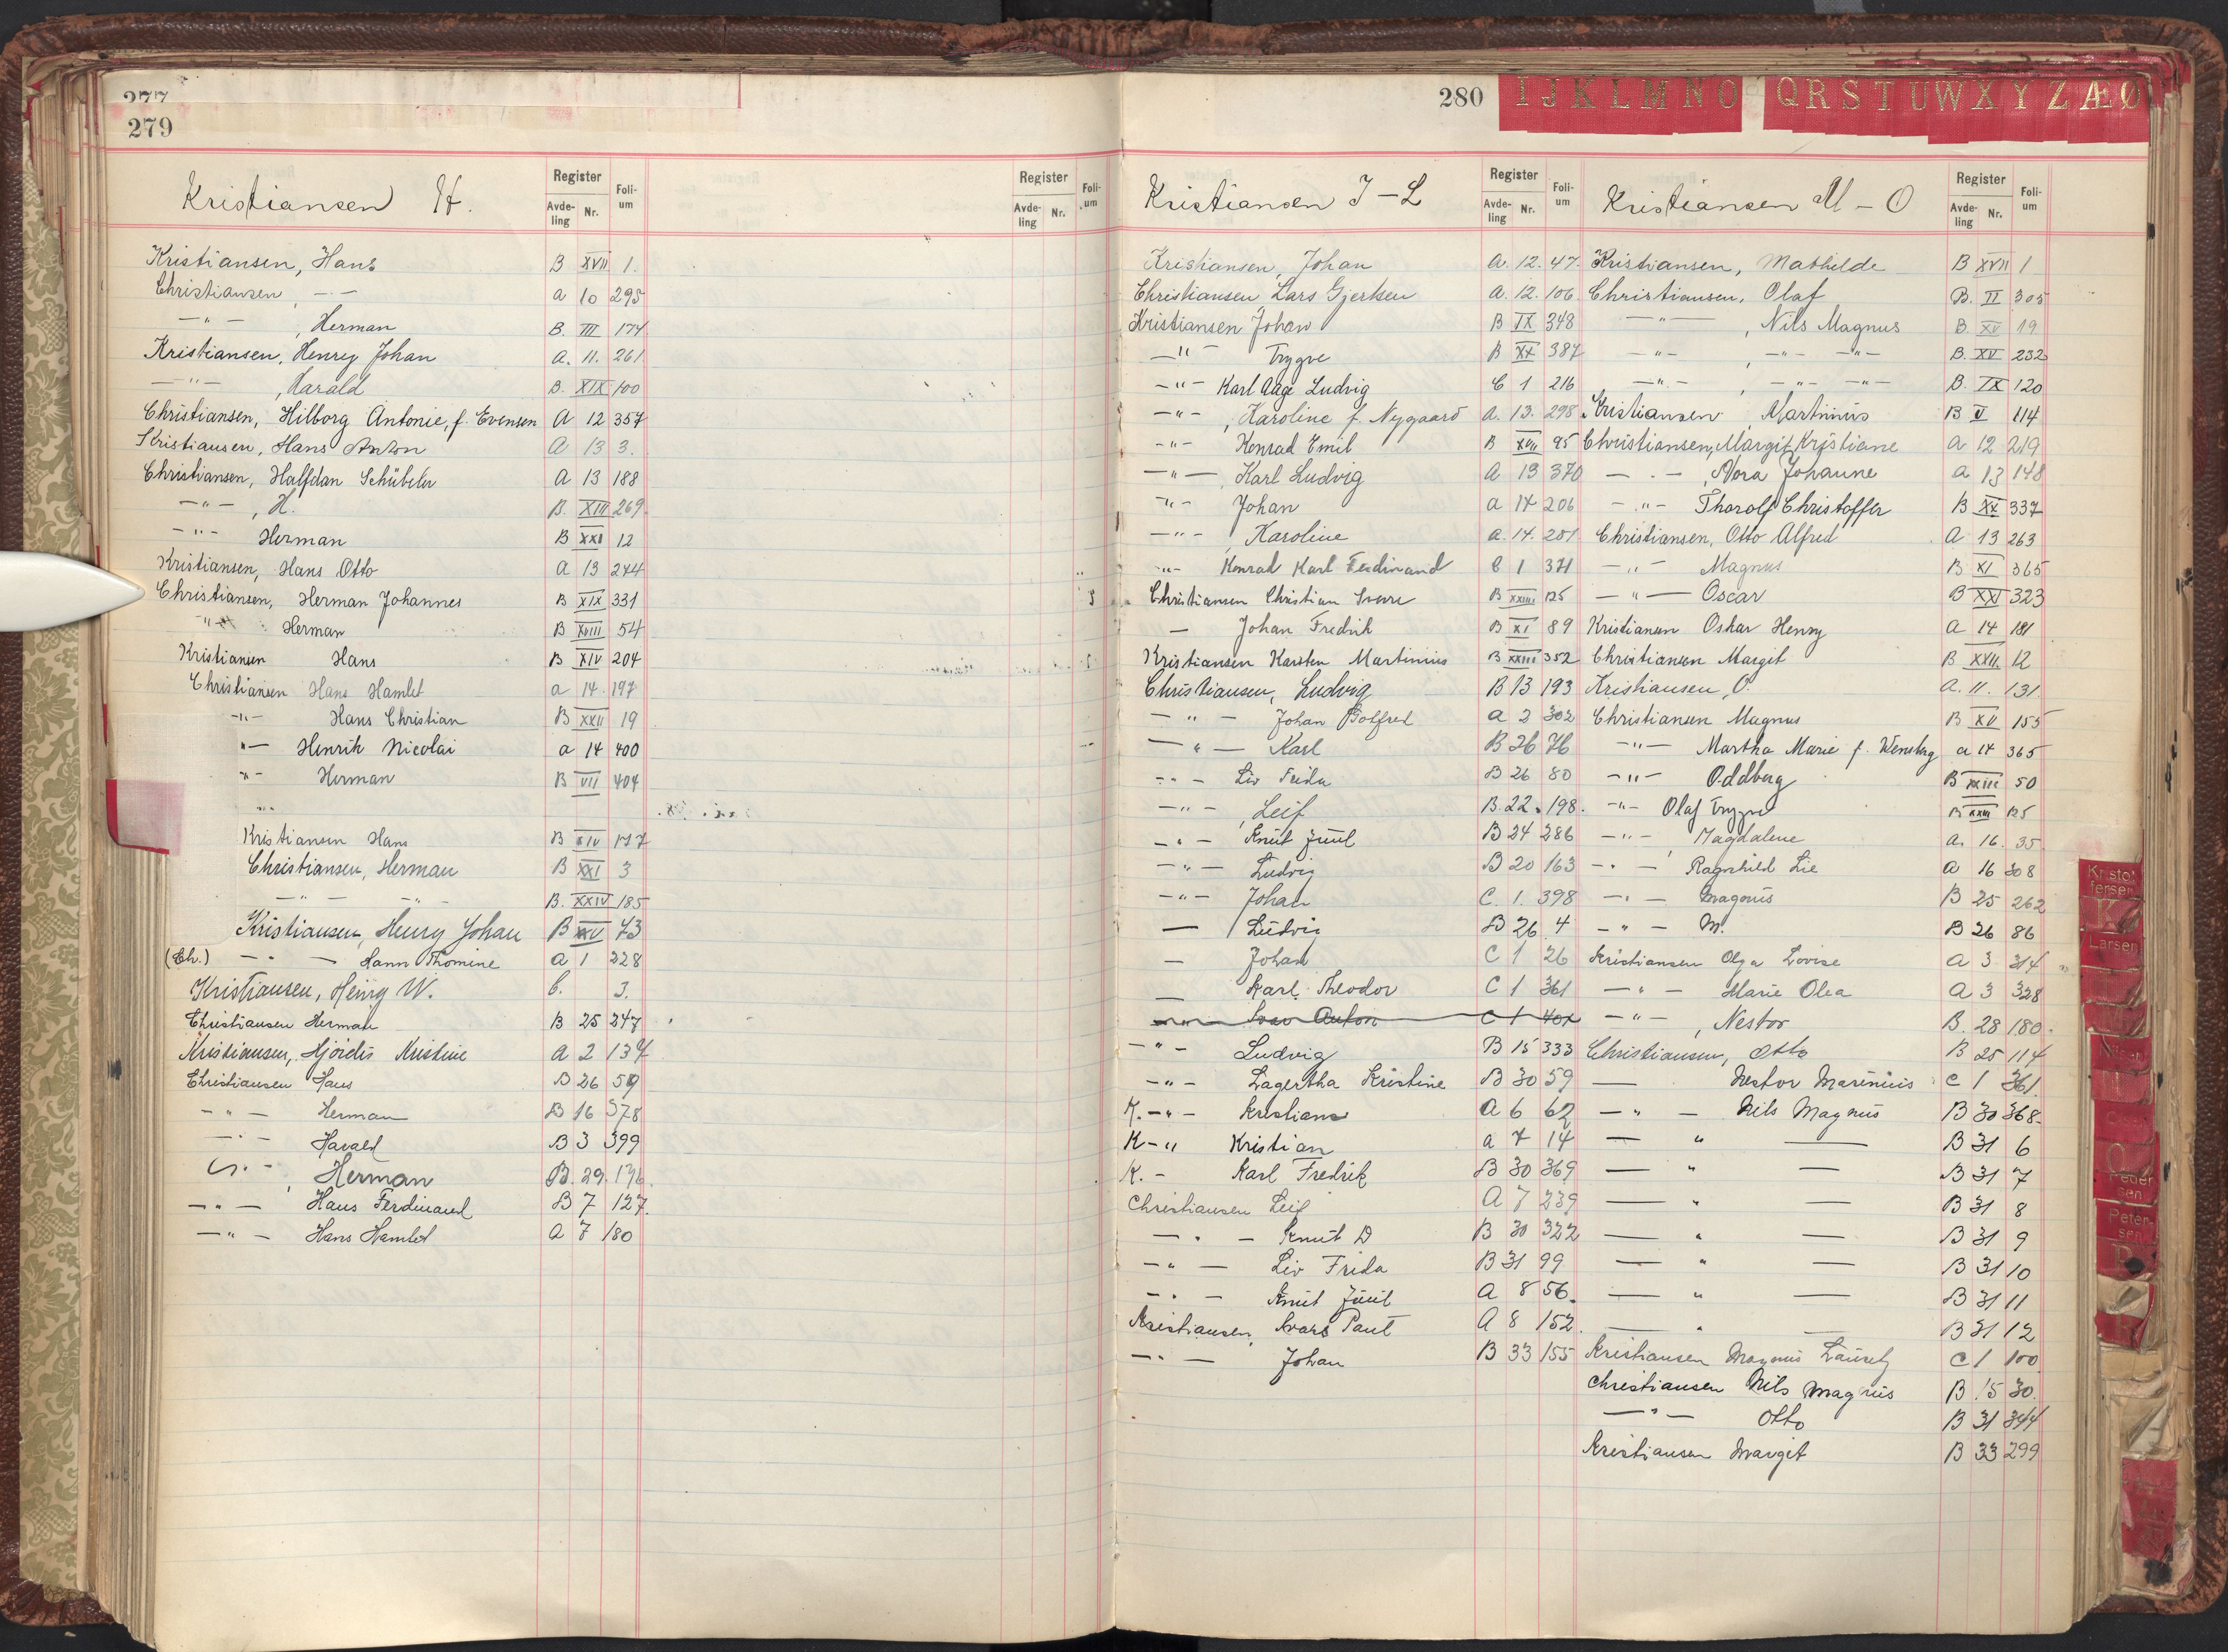 277
279
Kristiansen H.
Register
Avde-ling Nr.
Foli-um
Kristiansen, Hans B XVII 1.
Christiansen, -"- a 10 295
-"- , Herman B. III 174
Kristiansen, Henry Johan A. 11. 261
-"- , Harald B. XIX 100
Christiansen, Hilborg Antonie, f. Evensen A 12 357
Kristiansen, Hans Anton A 13 3.
Christiansen, Halfdan Schübeler A 13 188
-"- , H. B. XIII 269
-"- Herman B XXI 12
Kristiansen, Hans Otto A 13 244
Christiansen, Herman Johannes B XIX 331
-"- Herman B XVIII 54
Kristiansen Hans B XIV 204
Christiansen Hans Hamlet a 14 197
-"- Hans Christian B XXII 19
"- Henrik Nicolai a 14 400
"- Herman B VII 404
Kristiansen Hans B XIV 197
Christiansen, Herman B XXI 3
-"- -"- B. XXIV 185
Kristiansen, Henry Johan B XV 73
(Ch.) -"- Hann Thomine a 1 228
Kristiansen, Henry W. C. 3.
Christiansen Herman B 25 247
Kristiansen, Hjördis Kristine A 2 134
Christiansen Hans B 26 59
-"- Herman B 16 378
-"- Harald B 3 399
-"- , Herman B. 29. 196.
-"- Hans Ferdinand B 7 127.
-"- Hans Hamlet A 7 180
Register
Avde-ling Nr.
Foli-um
280
I J K L M N O Q R S T U W X Y Z Æ Ø
Kristiansen I - L
Register
Avde-ling Nr.
Foli-um
Kristiansen, Johan A. 12. 47.
Christiansen Lars Gjertsen A. 12. 106
Kristiansen Johan B IX 348
-"- Trygve B XX 387
-"- Karl Aage Ludvig C 1 216
-"- , Karoline f. Nygaard A. 13. 298
-"- Konrad Emil B XVII 95
-"- , Karl Ludvig A 13 370
-"- Johan a 14 206
-"- , Karoline a. 14. 251
-"- Konrad Karl Ferdinand C 1 371
Christiansen Christian Sverre B XXIII 125
- Johan Fredrik B XI 89
Kristiansen Karsten Martinius B XXIII 352
Christiansen, Ludvig B 13 193
-"- Johan Bolfred a 2 302
-"- Karl B 26 76
-"- Liv Frida B 26 80
-"- , Leif B. 22. 198.
-"- Knut Juul B 24 286
-"- Ludvig B 20 163
-"- Johan C. 1. 398
- Ludvig B 26 4
- Johan C 1 26
- Karl Theodor C 1 361
-"- Ivar Anton C 1 401
-"- Ludvig B 15 333
-"- Lagertha Kristine B 30 59
K. -"- Kristiane A 6 62
K - " Kristian a 7 14
K. - Karl Fredrik B 30 369
Christiansen Leif A 7 239
-"- Knut D B 30 322
-"- Liv Frida B 31 99
-"- Knut Juul A 8 56.
Kristiansen, Paul A 8 152
-"- Johan B 33 155
Kristiansen M - O
Register
Avde-ling Nr.
Foli-um
Kristiansen, Mathilde B XVII 1
Christiansen, Olaf B. II 305
-"- , Nils Magnus B. XV 19
-"- -"- -"- B. XV 232
-"- , -"- -"- B. IX 120
Kristiansen, Martinius B V 114
Christiansen, Margit Kristiane A 12 219
-"- , Nora Johanne a 13 148
-"- Thorolf Christoffer B XX 337
Christiansen, Otto Alfred A 13 263
-"- Magnus B XI 365
-"- Oscar B XXI 323
Kristiansen Oskar Henry a 14 181
Christiansen Margit B XXII 12
Kristiansen, O. a. 11. 131
Christiansen Magnus B XV 155
-"- Martha Marie f. Wensberg a 14 365
-"- Oddberg B XXIII 50
-"- Olaf Trygve B XXIII 125
-"- , Magdalene a. 16. 35.
-"- , Ragnhild Lie a 16 308
-"- Magnus B 25 262
-"- M. B 26 86
Kristiansen Olga Lovise A 3 314
-"- Marie Olea A 3 328
-"- , Nestor B. 28 180.
Christiansen, Otto B 25 114
— Nestor Marinius C 1 361.
-"- Nils Magnus B 30 368.
— " — B 31 6
— " — B 31 7
— " — B 31 8
— " — B 31 9
— " — B 31 10
— " — B 31 11
— " — B 31 12
Kristiansen Magnus Lauritz C 1 100
Christiansen Nils Magnus B 15 30.
-"- Otto B 31 344
Kristiansen Margit B 33 299
Kristoffersen
K
Larsen
Pedersen
Petersen
P